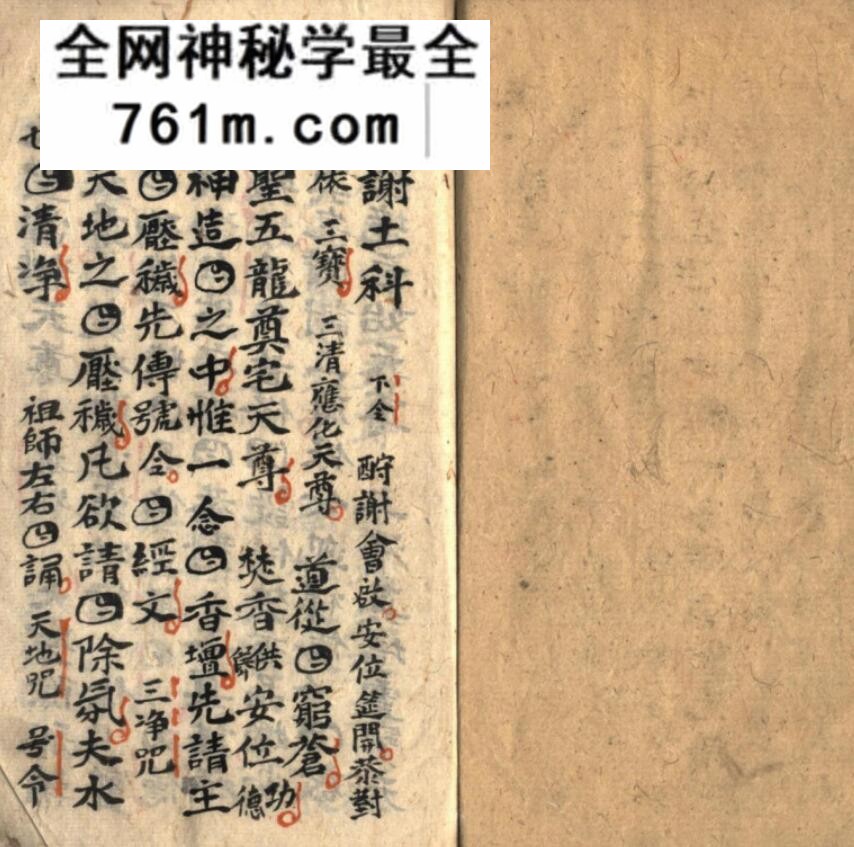 全网神秘学最全
761m.com
謝土科 下全 酧謝會啟安位筵開恭對
依 三寶 三清應化天尊 道從㊀窮蒼
聖五龍奠宅天尊 焚香供養安位功德
神造㊀之中惟一念㊀香壇先請主
㊀壓穢先傳號令㊀經文 三净咒
天地之㊀壓穢凡欲請㊀除氛夫水
七㊀清净 祖師左右㊀誦 天地咒 号令